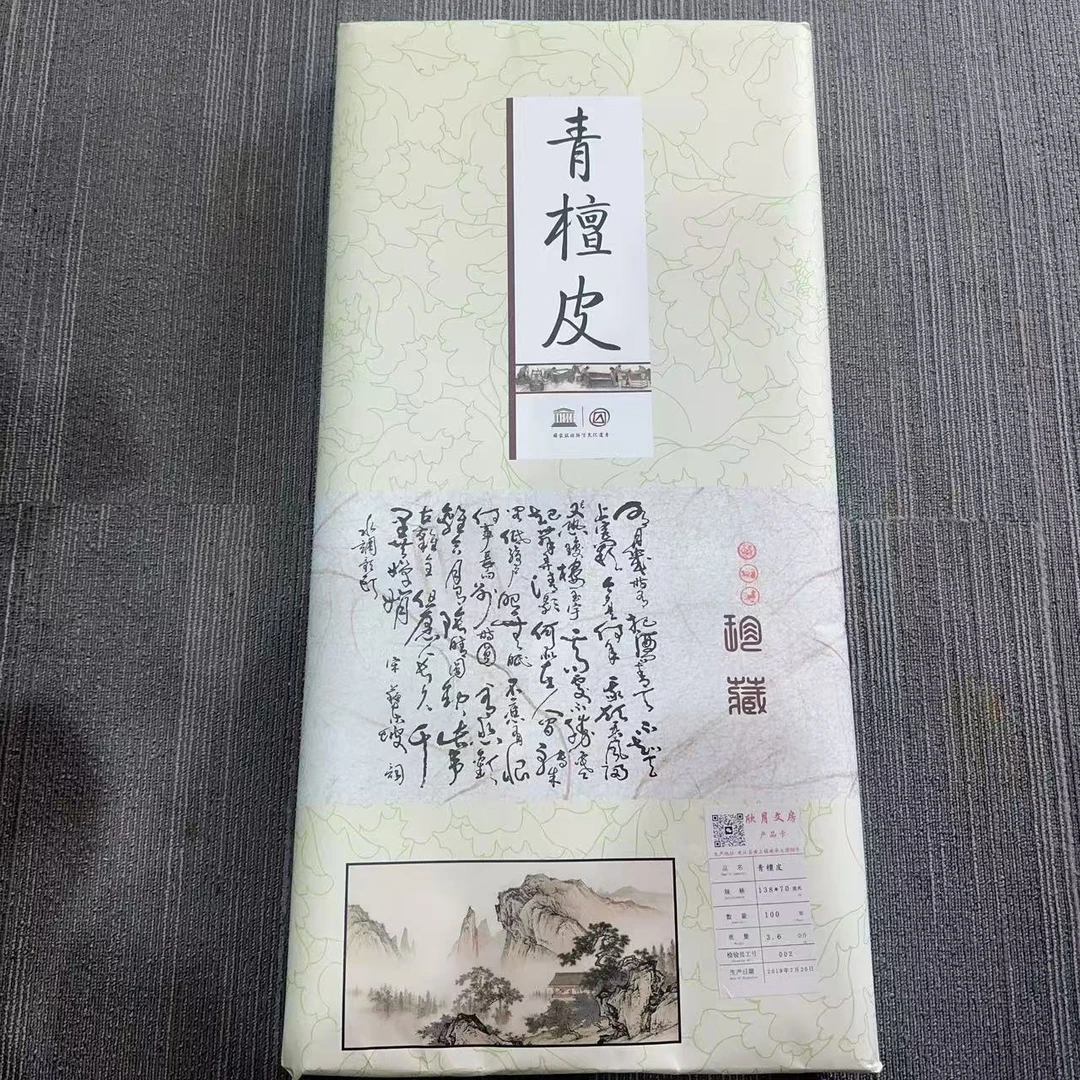 青檀皮
国家级非物质文化遗产
明月幾時有把酒問青天不知天
上宮闕今夕是何年我欲乘風歸
又恐瓊樓玉宇高處不勝寒
起舞弄清影何似在人間轉朱
閣低綺戶照無眠不應有恨
何事長向別時圓人有悲歡
離合月有陰晴圓缺此事
古難全但願人長久千
里共嬋娟
宋蘇東坡詞
水調歌頭
珍藏
欣月文房
产品卡
生产地址:夹江县
品名 青檀皮
规格 138*70 厘米
数量 100 张
重量 3.6
检验员工号 002
生产日期 2019年7月20日